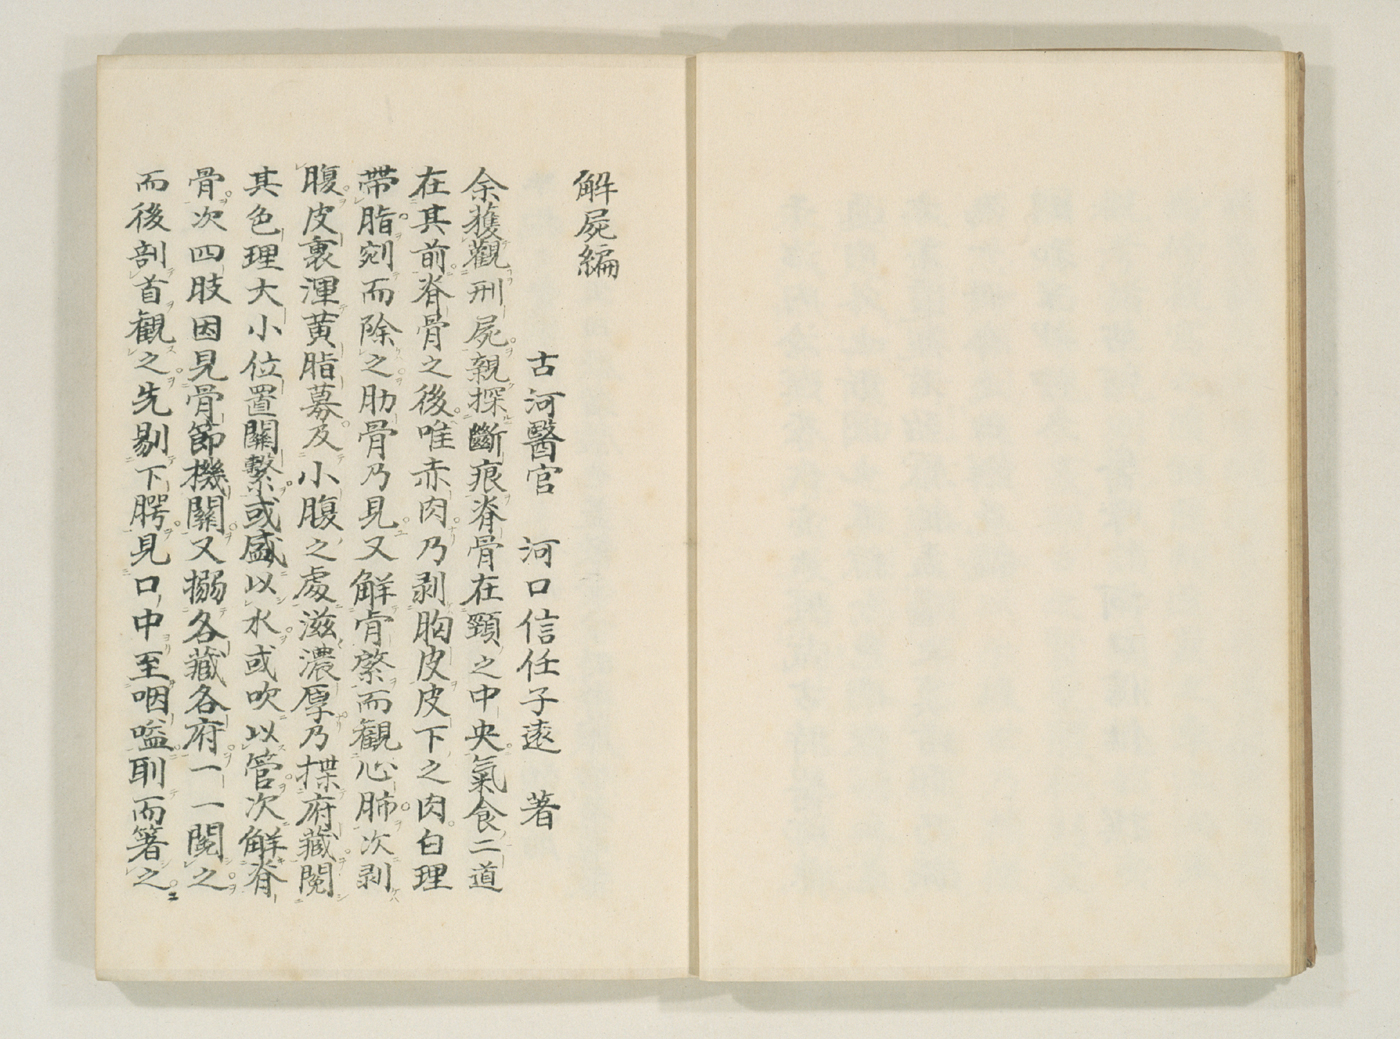 解屍編
古河醫官 河口信任子遠 著
余獲觀刑屍親探斷痕脊骨在頸之中央氣食二道
在其前脊骨之後唯赤肉乃剥胸皮皮下之肉白理
帶脂剜而除之肋骨乃見又解骨綮而觀心肺次剥
腹皮裏渾黄脂募及小腹之處滋濃厚乃揲府藏閲
其色理大小位置關繫或盛以水或吹以管次解脊
骨次四肢因見骨節機關又搦各藏各府一一閲之
而後剖首観之先剔下腭見口中至咽嗌刵而箸之